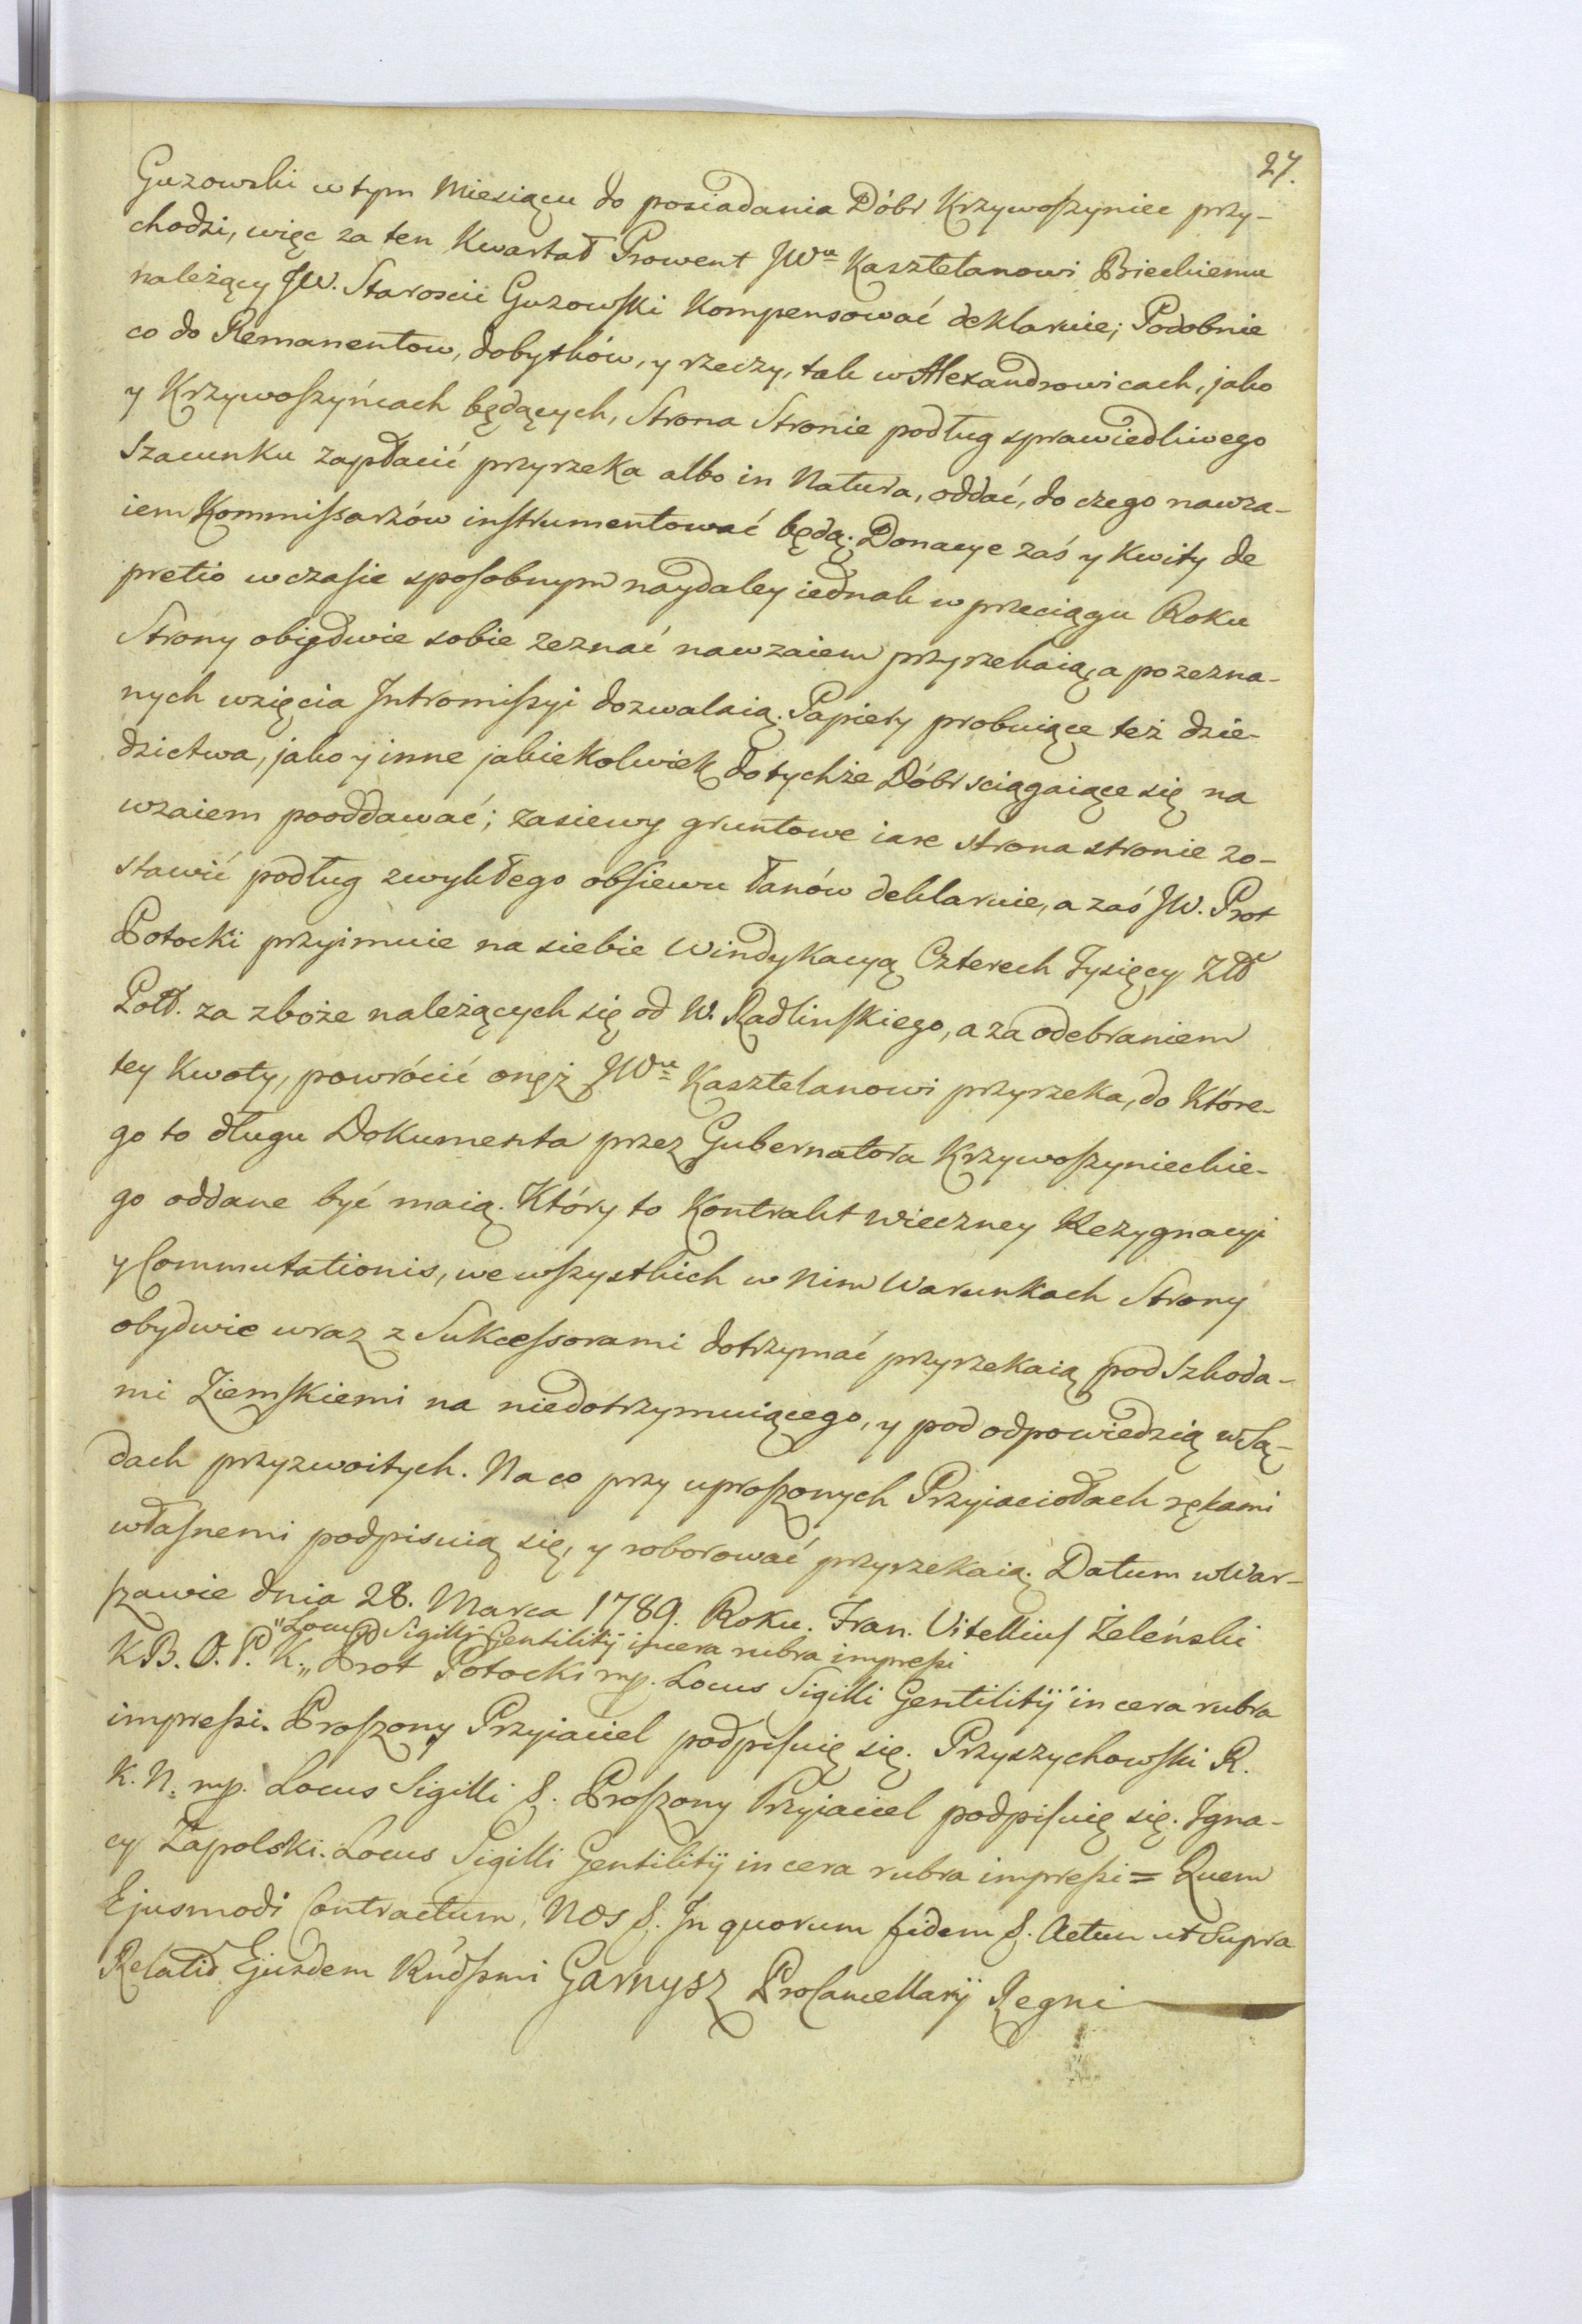 27.
Guzowski w tym Miesiącu do posiadania Dóbr Krzywoszyniec przy-
chodzi, więc za ten Kwartał Prowent JWu Kasztelanowi Bieckiemu
należący JW. Staroscic Guzowski Kompensować deklaruie; Podobnie
co do Remanentow, dobytków, y rzeczy, tak w Alexandrowicach, jako
y Krzywoszyńcach będących, Strona Stronie podług sprawiedliwego
Szacunku zapłacić przyrzeka albo in Natura, oddać, do czego nawza-
iem Kommissarzów instrumentować będą. Donacye zaś y Kwity de
pretio w czasie sposobnym naydaley iednak w przeciągu Roku
Strony obiedwie sobie zeznać nawzaiem przyrzekaią, a po zezna-
nych wzięcia Intromissyi dozwalaią. Papiery probuiące też dzie-
dzictwa, jako y inne jakiekolwiek do tychże Dóbr sciągaiące się na
wzaiem pooddawać; zasiewy gruntowe iare strona stronie zo-
stawić podług zwykłego obsiewu łanów deklaruie, a zaś JW. Prot
Potocki przyimuie na siebie Windykacyą Czterech Tysięcy Złł
Poll. za zboże należących się od W. Radlinskiego, a za odebraniem
tey Kwoty, powrócić onęż JWu Kasztelanowi przyrzeka, do Które-
go to długu Dokumenta przez Gubernatora Krzywoszynieckie-
go oddane być maią. Który to Kontrakt wieczney Rezygnacyi
y Commutationis, we wszystkich w Nim Warunkach Strony
obydwie wraz z Sukcessorami dotrzymać przyrzekaią pod Szkoda-
mi Ziemskiemi na niedotrzymuiącego, y pod odpowiedzią w Są-
dach przyzwoitych. Na co przy uproszonych Przyiaciołach rękami
własnemi podpisuią się, y roborować przyrzekaią. Datum w War-
szawie dnia 28. Marca 1789. Roku. Fran. Vitellius Żeleński
"Locus Sigilli Gentilitÿ in cera rubra impressi
K B. O. P. K.„ Prot Potocki mp. Locus Sigilli Gentilitÿ in cera rubra
impressi. Proszony Przyiaciel podpisuię się. Przyszychowski R.
K. N. mp. Locus Sigilli &. Proszony Przyiaciel podpisuię się. Igna-
cy Zapolski. Locus Sigilli Gentilitÿ in cera rubra impressi = Quem
Ejusmodi Contractum, Nos &. In quorum fidem &. Actum ut Supra
Relatio Ejusdem Rndssmi Garnysz ProCancellarÿ Regni